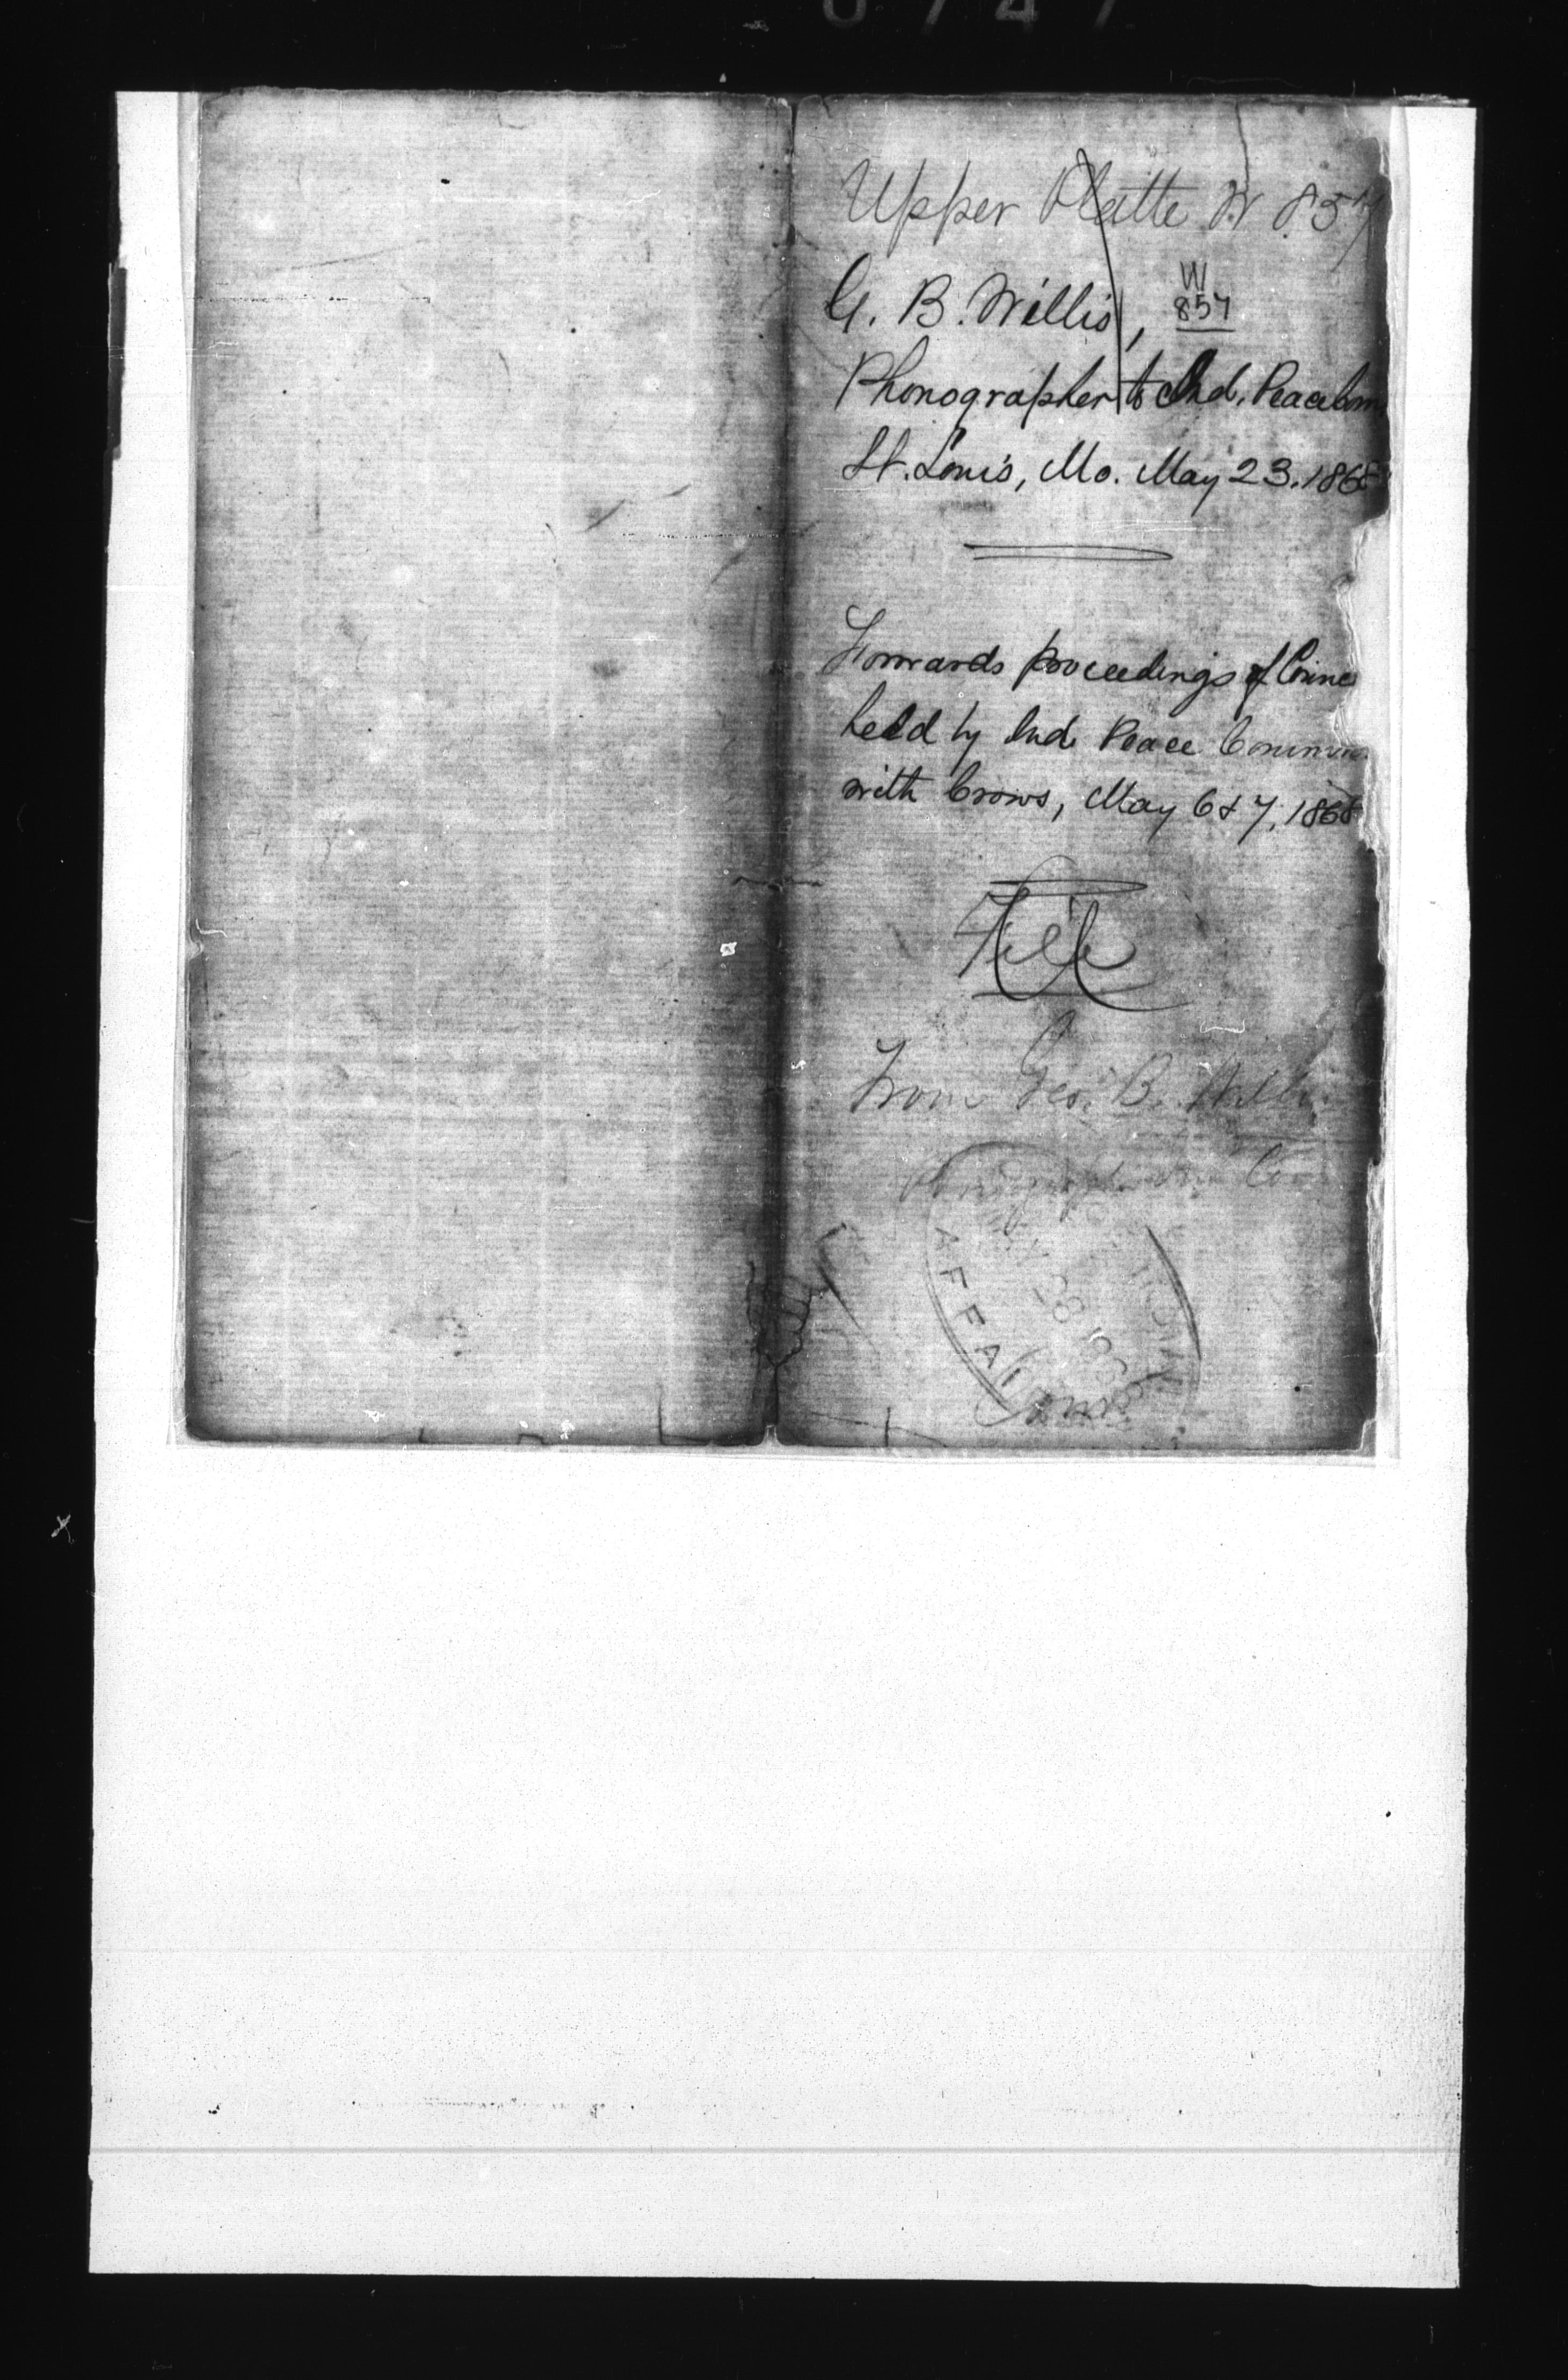 Upper Platte W 857
G. B. Willis,
W
857
Phonographer to Ind. Peace Com
St. Louis, Mo. May 23. 1868
Forwards proceedings of Counc
held by Ind. Peace Commis
with Crows, May 6 & 7, 1868
File
From Geo. B. Willis
AFFAI
28 1868